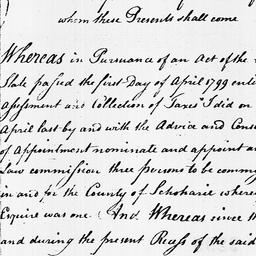 whom these Presents shall come
Whereas in Pursuance of an Act of the
State passed the first Day of April 1799 enti
Assessment and Collection of Taxes" I did on
April last by and with the Advice and Cons
of Appointment nominate and appoint an
Law commission three persons to be commi
in and for the County of Schoharie where
Esquire was one And Whereas since th
and during the present Recess of the said